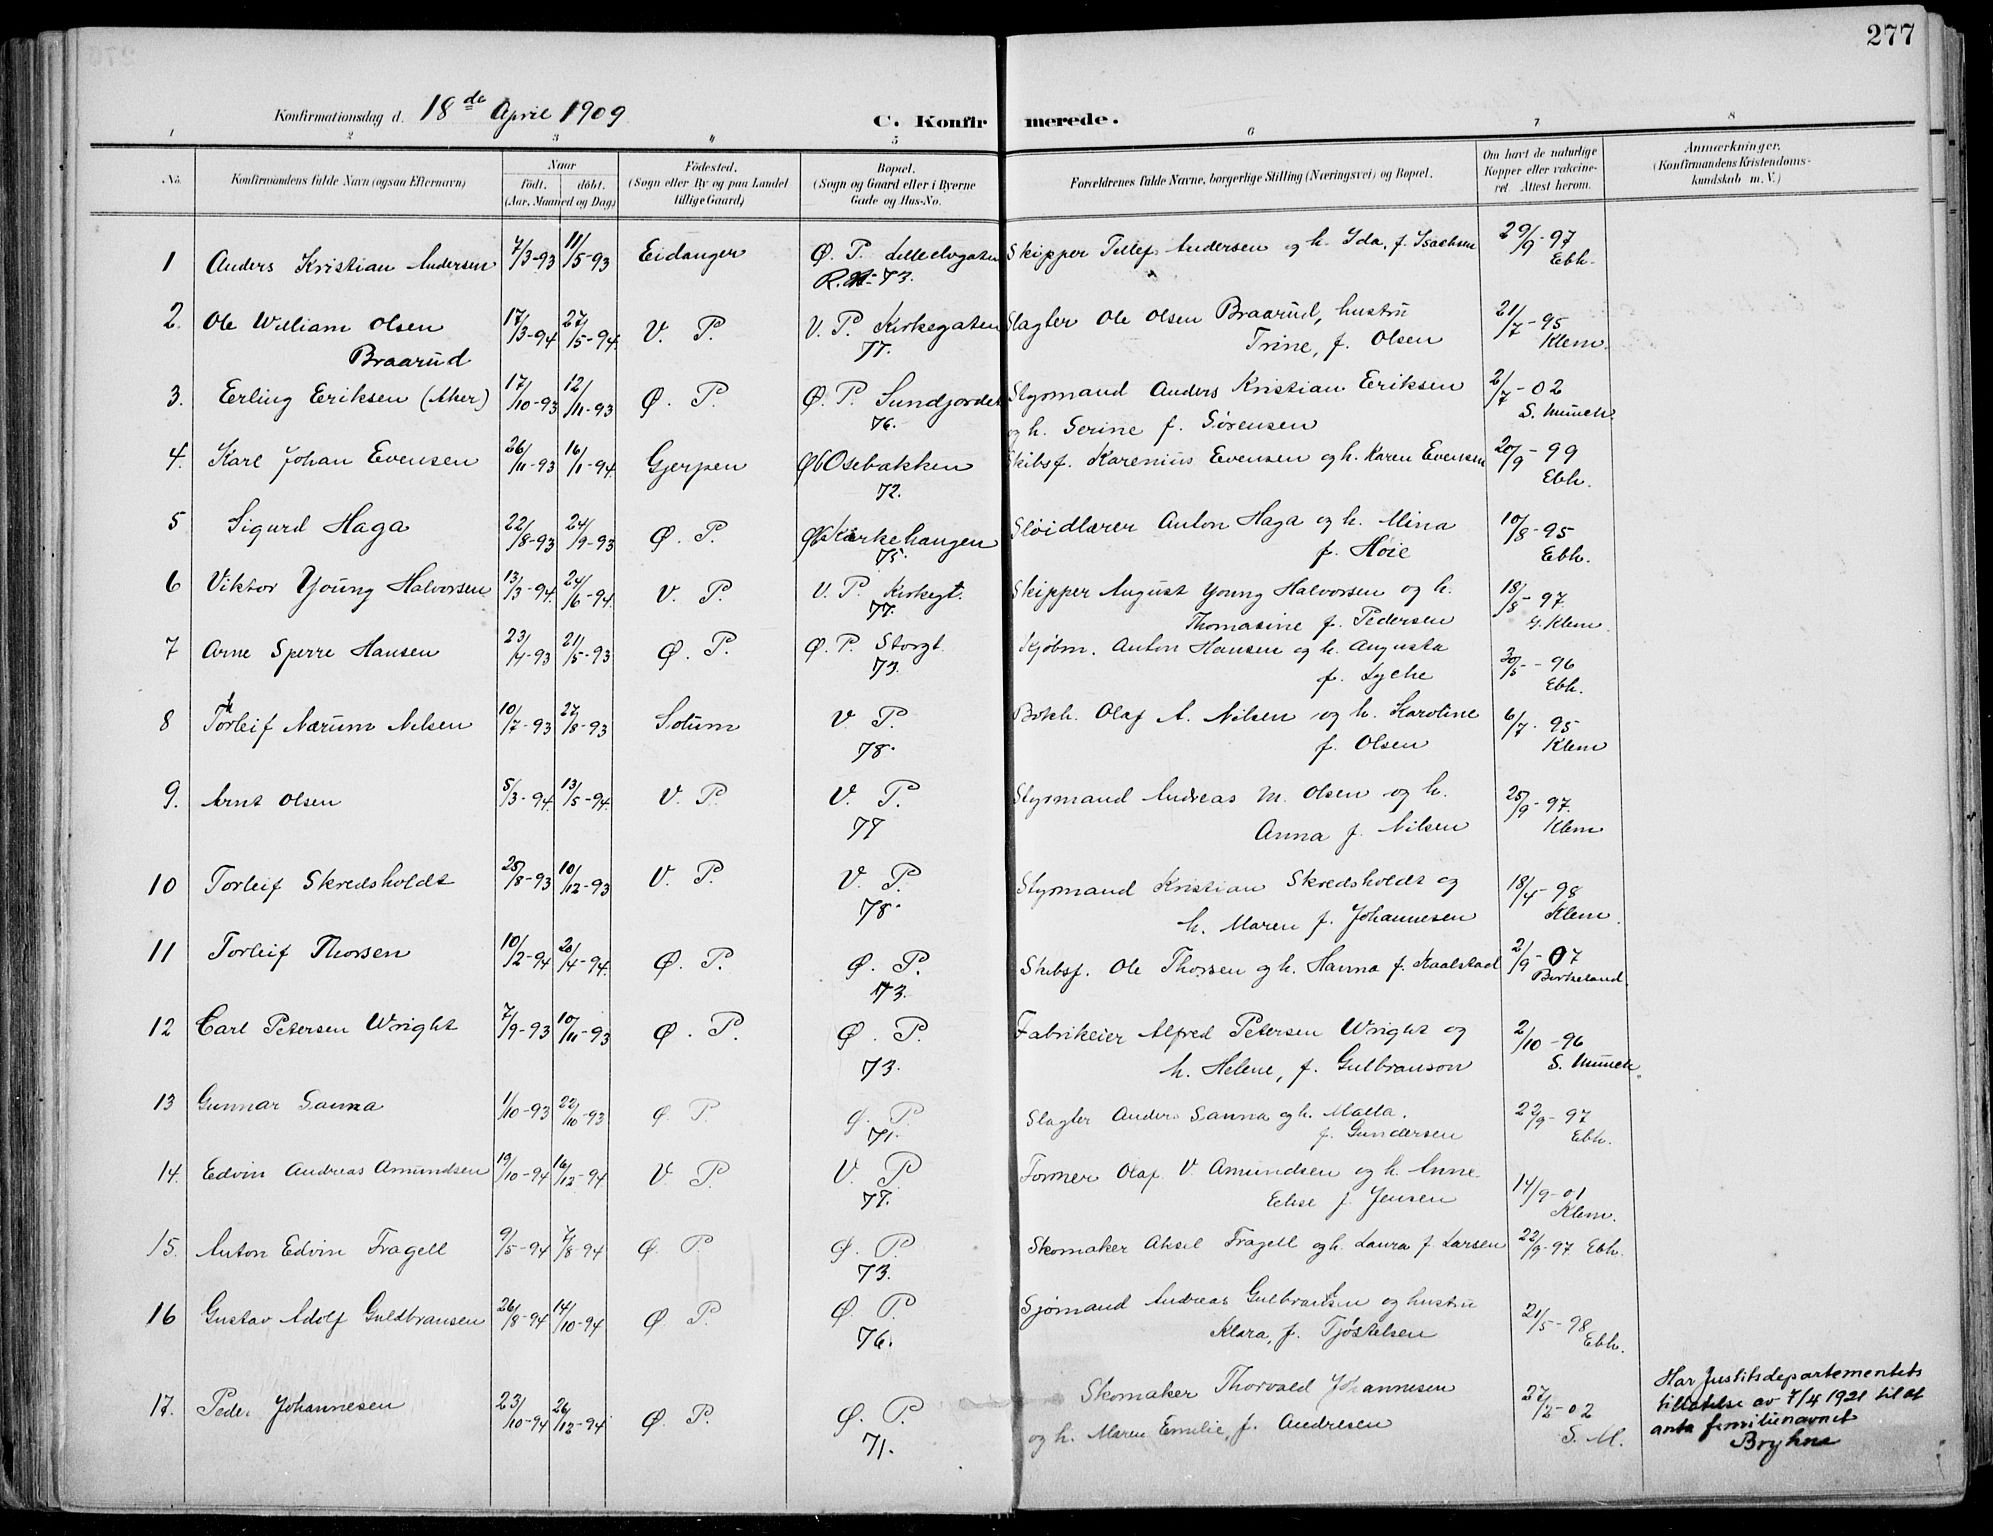 277
Konfirmationsdag d. 18de April 1909
C. Konfirmerede.
1 2 3 4 5 6 7 8
No. Konfirmandens fulde Navn (ogsaa Efternavn) Naar født. døbt. (Aar, Maaned og Dag) Fødested. (Sogn eller By og paa Landet tillige Gaard) Bopæl. (Sogn og Gaard eller i Byerne Gade og Hus-No. Forældrenes fulde Navne, borgerlige Stilling (Næringsvei) og Bopæl. Om havt de naturlige Kopper eller vakcineret Attest herom. Anmærkninger. (Konfirmandens Kristendomskundskab m. V.)
1 Anders Kristian Andersen 7/3-93 11/5-93 Eidanger Ø. P. Lilleelvgaten 73. Skipper Tellef Andersen og h. Ida, f. Isachsen 29/9-97 Ebh.
2. Ole William Olsen Braarud 17/3-94 27/5-94. V. P. V. P. Kirkegaten 77. Slagter Ole Olsen Braarud, hustru Trine, f. Olsen 21/7-95 Klem.
3. Erling Eriksen (Aker) 17/10-93 12/11-93 Ø. P. Ø. P. Sundjordet 76. Styrmand Anders Kristian Eriksen og h. Serine f. Sørensen 2/7-02 S. Munch.
4. Karl Johan Evensen 26/11-93 16/1-94. Gjerpen Osebakken 72. Skibsf. Karenius Evensen og h. Karen Evensen 20/9-99 Ebh.
5 Sigurd Haga 22/8-93 24/9-93 Ø. P. Kirkehaugen 75. Sløidlærer Anton Haga og h. Mina f. Høie 10/8-95 Ebh.
6 Viktor Young Halvorsen 13/3-94. 24/6-94. V. P. V. P. Kirkegt. 77. Skipper August Young Halvorsen og h. Thomasine f. Pedersen 18/8-97. Klem.
7 Arne Sperre Hansen 23/4-93 21/5-93 Ø. P. Ø. P. Storgt. 73. Kjøbm. Anton Hansen og h. Augusta f. Lyche 20/5-96 Ebh.
8 Thorleif Nærum Nilsen 10/7-93 27/8-93 Solum V. P. 78. Bokh. Olaf A. Nilsen og h. Karoline f. Olsen 6/7-95 Klem
9. Arnt Olsen 5/3-94. 13/5-94. V. P. V. P. 77 Styrmand Andreas M. Olsen og h. Anna f. Nilsen 25/9-97. Klem
10 Torleif Skredsholdt 25/8-93 10/12-93 V. P. V. P. 78. Styrmand Kristian Skredsholdt og h. Maren f. Johannesen 18/4-98 Klem.
11 Torleif Thorsen 10/2-94 20/4-94. Ø. P. Ø. P. 73. Skibsf. Ole Thorsen og h. Hanna f. Kaalstad 2/9-07 Birkeland.
12 Carl Petersen Wright 7/9-93 10/11-93 Ø. P. Ø. P. 73. Fabrikeier Alfred Petersen Wright og h. Helene, f. Gulbranson 2/10-96 S. Munch.
13 Gunnar Sanna 1/10-93 22/10-93 Ø P. Ø. P. 71. Slagter Anders Sanna og h. Malla. f. Gundersen 22/9-97 Ebh.
14. Edvin Andreas Amundsen 19/10-94 16/12-94 V P. V. P. 77. Former Olaf V. Amundsen og h. Anne Elise f. Jensen 14/9-01 Klem.
15. Anton Edvin Fragell 9/5-94 7/8-94 Ø. P. Ø. P 73. Skomaker Aksel Fragell og h. Laura f. Larsen 22/9-97 Ebh.
16 Gustav Adolf Guldbransen 26/8-94 14/10-94 Ø P. Ø. P 76. Sjømand Andreas Gulbrantsen og hustru Klara, f. Tjøstelsen 21/5-98 Ebh.
17. Peder Johannesen 23/10-94 26/12-94 Ø. P. Ø. P. 71. Skomaker Thorvald Johannesen og h. Maren Emilie, f. Andresen 27/2-02 S. M. Har Justitsdepartementets tillatelse av 7/4 1921 til at anta familienavnet Bryhne